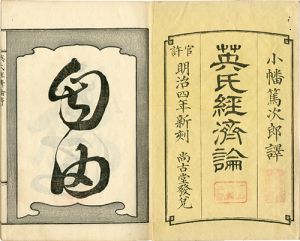 小幡篤次郎譯
英氏經濟論
官許
明治四年新刻　尚古堂發兌
自由